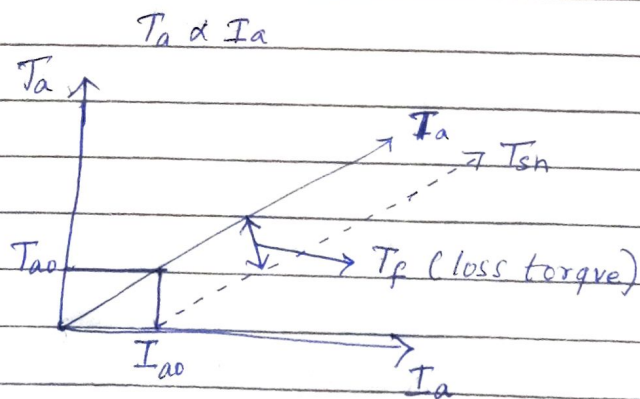 Ta α Ia
Ta
Ia
Tsh
Tao
Tf (loss torque)
Iao
Ia